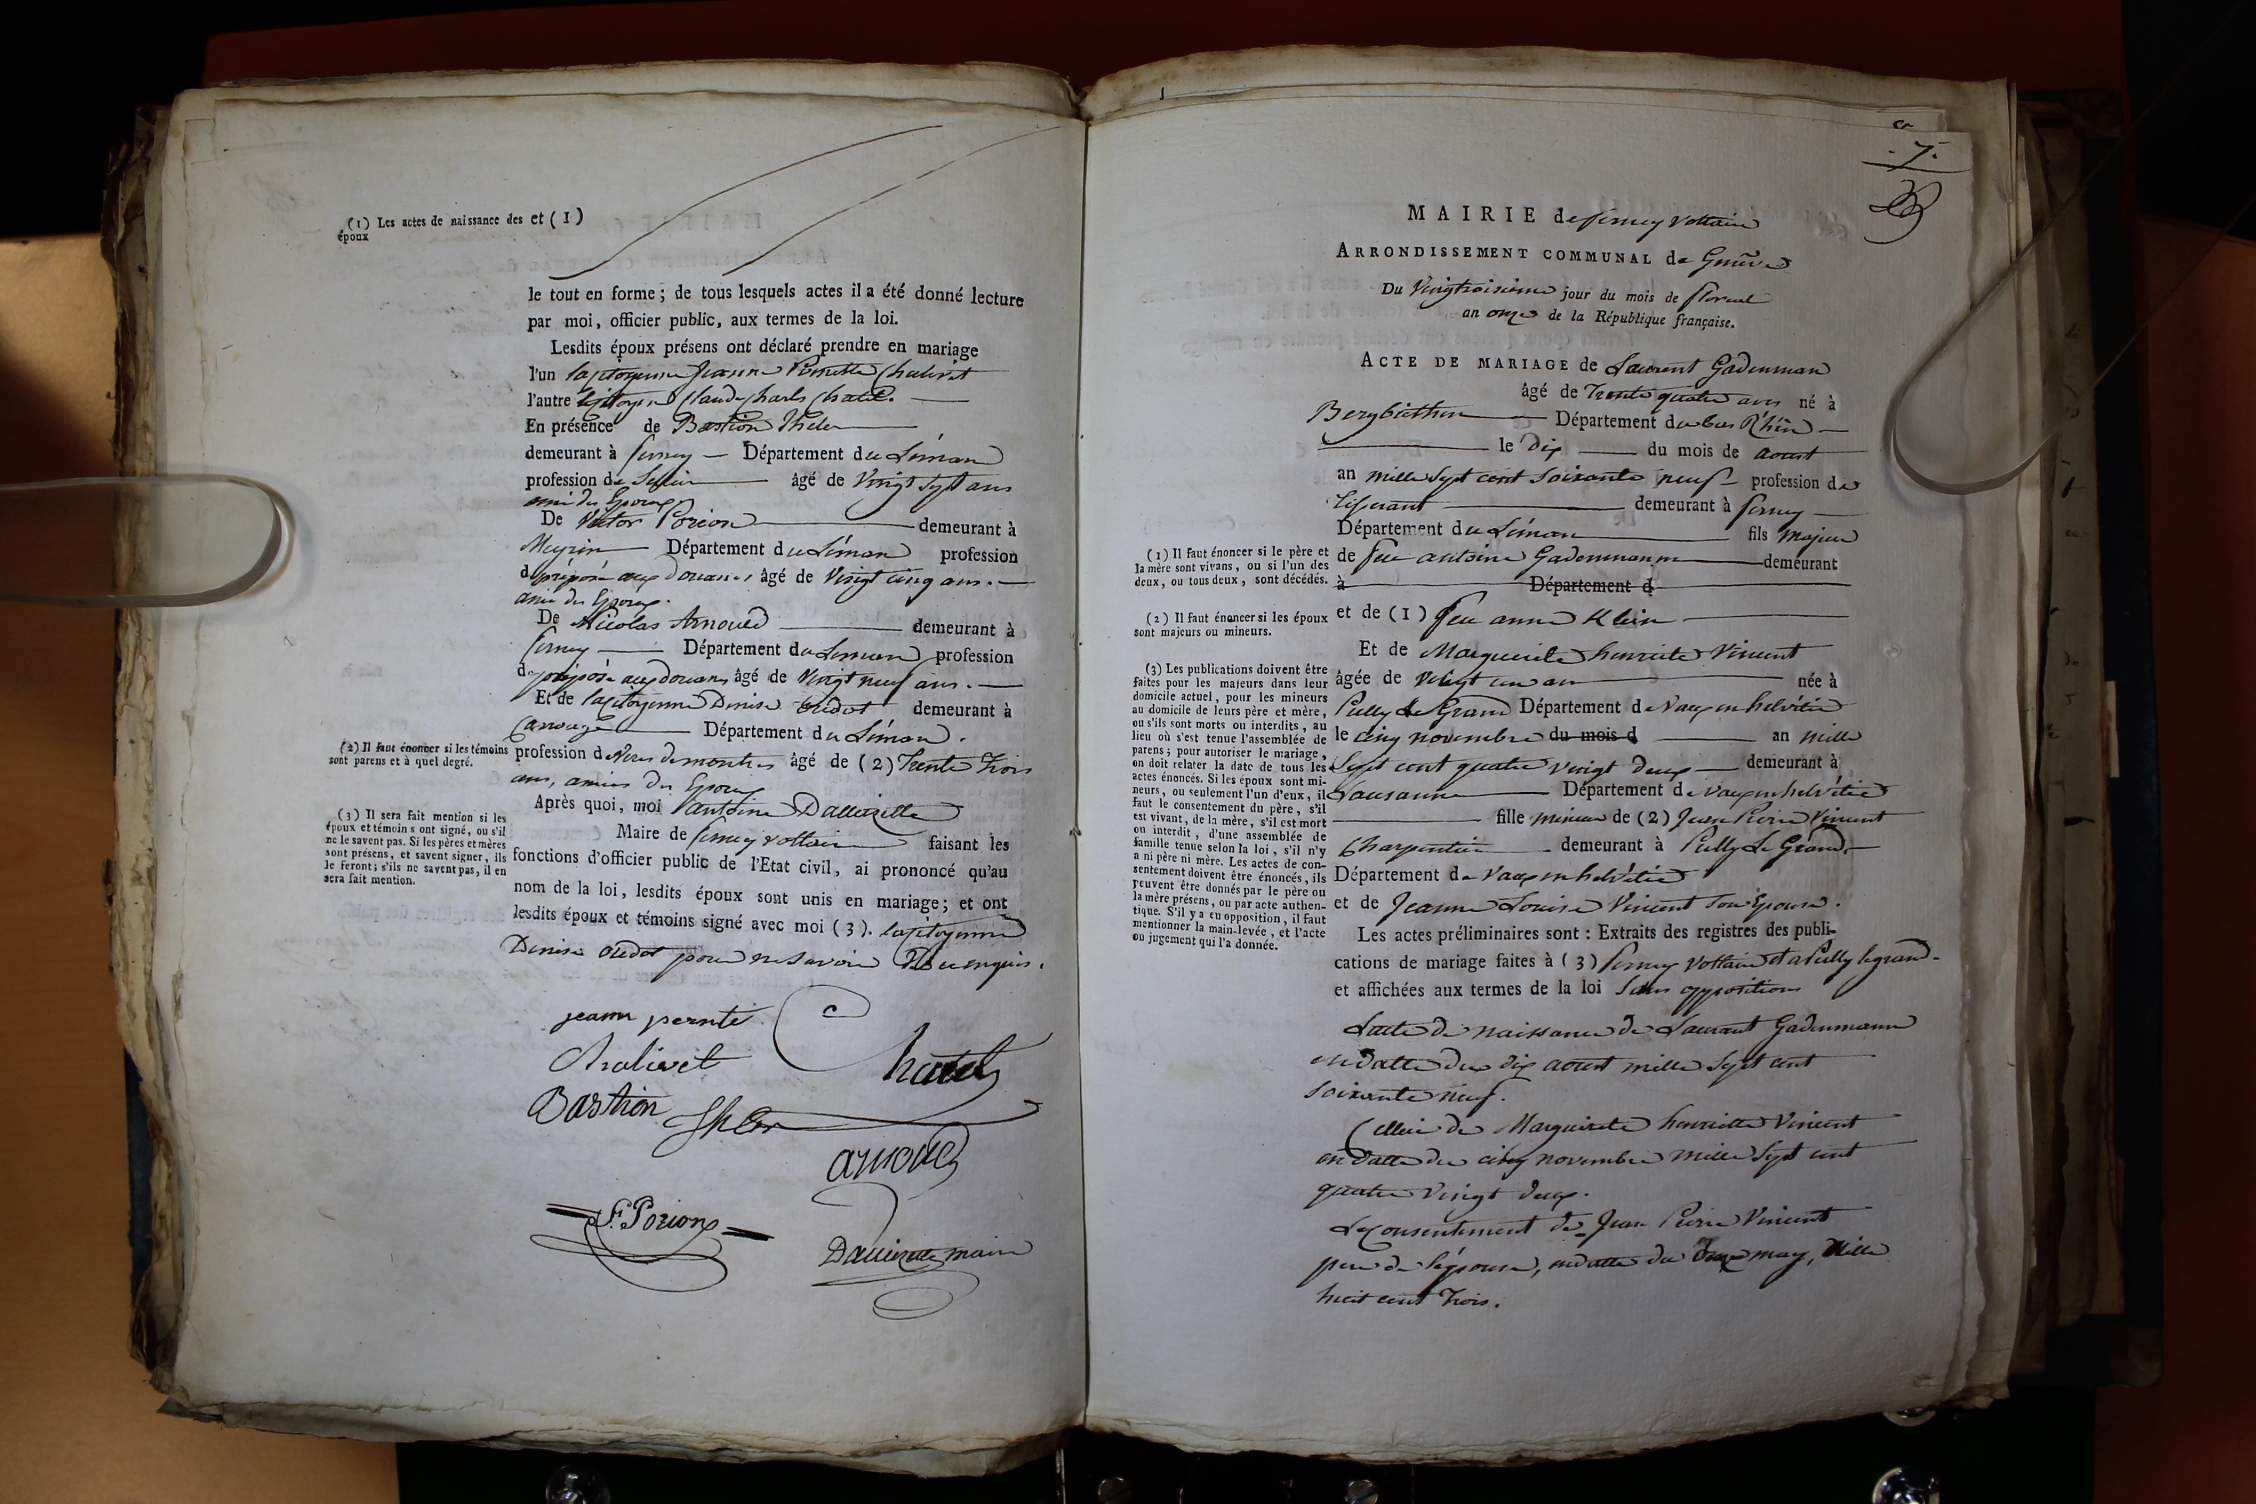 (1) Les actes de naissance des
époux
et (1)
le tout en forme ; de tous lesquels actes il a été donné lecture
par moi, officier public, aux termes de la loi.
Lesdits époux présens ont déclaré prendre en mariage
l'un la citoyenne Jeanne Pernette Chalivet
l'autre le citoyen Claude Charles Chatel.
En présence de Bastion Theler
demeurant à ferney Département du Léman
profession de Sellier âgé de Vingt Sept ans
ami des Epoux
De Victor Porion demeurant à
Meyrin Département du Léman profession
de préposé aux douanes âgé de Vingt cinq ans.
ami des Epoux.
De Nicolas Arnoued demeurant à
ferney Département du Leman profession
de préposé aux douanes âgé de Vingt neuf ans.
Et de la citoyenne Denise Oudot demeurant à
Carouge Département du Léman.
(2) Il faut énoncer si les témoins
sont parens et à quel degré.
profession de montres âgé de (2) Trente Trois
ans, amies des Epoux
Après quoi, moi Antoine
Maire de ferney voltaire faisant les
(3) Il sera fait mention si les
époux et témoins ont signé, ou s'il
ne le savent pas. Si les pères et mères
sont présens, et savent signer, ils
le feront; s'ils ne savent pas, il en
sera fait mention.
fonctions d'officier public de l'Etat civil, ai prononcé qu'au
nom de la loi, lesdits époux sont unis en mariage; et ont
lesdits époux et témoins signé avec moi (3). la citoyenne
Denise Oudot pour ne savoir de ce enquis.
jeanne pernete
Chalivet
Chatel
Bastion Theler
arnoued
F. Porion
maire
7.
MAIRIE de ferney Voltaire
ARRONDISSEMENT COMMUNAL de Genève
Du Vingtroisieme jour du mois de floreal
an onze de la République française.
ACTE DE MARIAGE de Laurent Gadenman
âgé de Trente quatre ans né à
Bergbiethen Département du bas Rhin
le Dix du mois de aoust
an mille Sept cent Soixante neuf profession de
Tisserant demeurant à ferney
Département du Léman fils majeur
(1) Il faut énoncer si le père et
la mère sont vivans, ou si l'un des
deux, ou tous deux, sont décédés.
de feu antoine Gadenmann demeurant
à Département d
(2) Il faut énoncer si les époux
sont majeurs ou mineurs.
et de (1) feue anne Klein
Et de Marguerite henriete Vincent
(3) Les publications doivent être
faites pour les majeurs dans leur
domicile actuel, pour les mineurs
au domicile de leurs père et mère,
ou s'ils sont morts ou interdits, au
lieu où s'est tenue l'assemblée de
parens; pour autoriser le mariage,
on doit relater la date de tous les
actes énoncés. Si les époux sont mi-
neurs, ou seulement l'un d'eux, il
faut le consentement du père, s'il
est vivant, de la mère, s'il est mort
ou interdit, d'une assemblée de
famille tenue selon la loi, s'il n'y
a ni père ni mère. Les actes de con-
sentement doivent être énoncés, ils
peuvent être donnés par le père ou
la mère présens, ou par acte authen-
tique. S'il y a eu opposition, il faut
mentionner la main-levée, et l'acte
ou jugement qui l'a donnée.
âgée de Vingt un an née à
Pully Le Grand Département de Vaux en helvétie
le cinq novembre du mois d an mille
Sept cent quatre vingt deux demeurant à
Lausanne Département de vaux en helvétie
fille mineure de (2) Jean Pierre Vincent
Charpentier demeurant à Pully Le Grand
Département de vaux en helvétie
et de Jeanne Louise Vincent Son Epouse.
Les actes préliminaires sont : Extraits des registres des publi-
cations de mariage faites à (3) ferney Voltaire et a Pully le grand
et affichées aux termes de la loi Sans oppositions
L'acte de naissance de Laurent Gadenmann
en datte du dix aoust mille Sept cent
Soixante neuf.
Celluie de Marguerete henriette Vincent
en datte du cinq novembre mille Sept cent
quatre Vingt deux.
Le Consentement de Jean Pierre Vincent
pere de l'épouse, en datte du may, Mille
huit cent Trois.